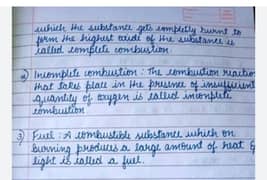 which the substance gets completly burnt to
form the highest oxide of the substance is
called complete combustion.
2) Incomplete combustion : The combustion reaction
that takes place in the presence of insufficient
quantity of oxygen is called incomplete
combustion
3) Fuel : A combustible substance which on
burning produces a large amount of heat &
light is called a fuel.